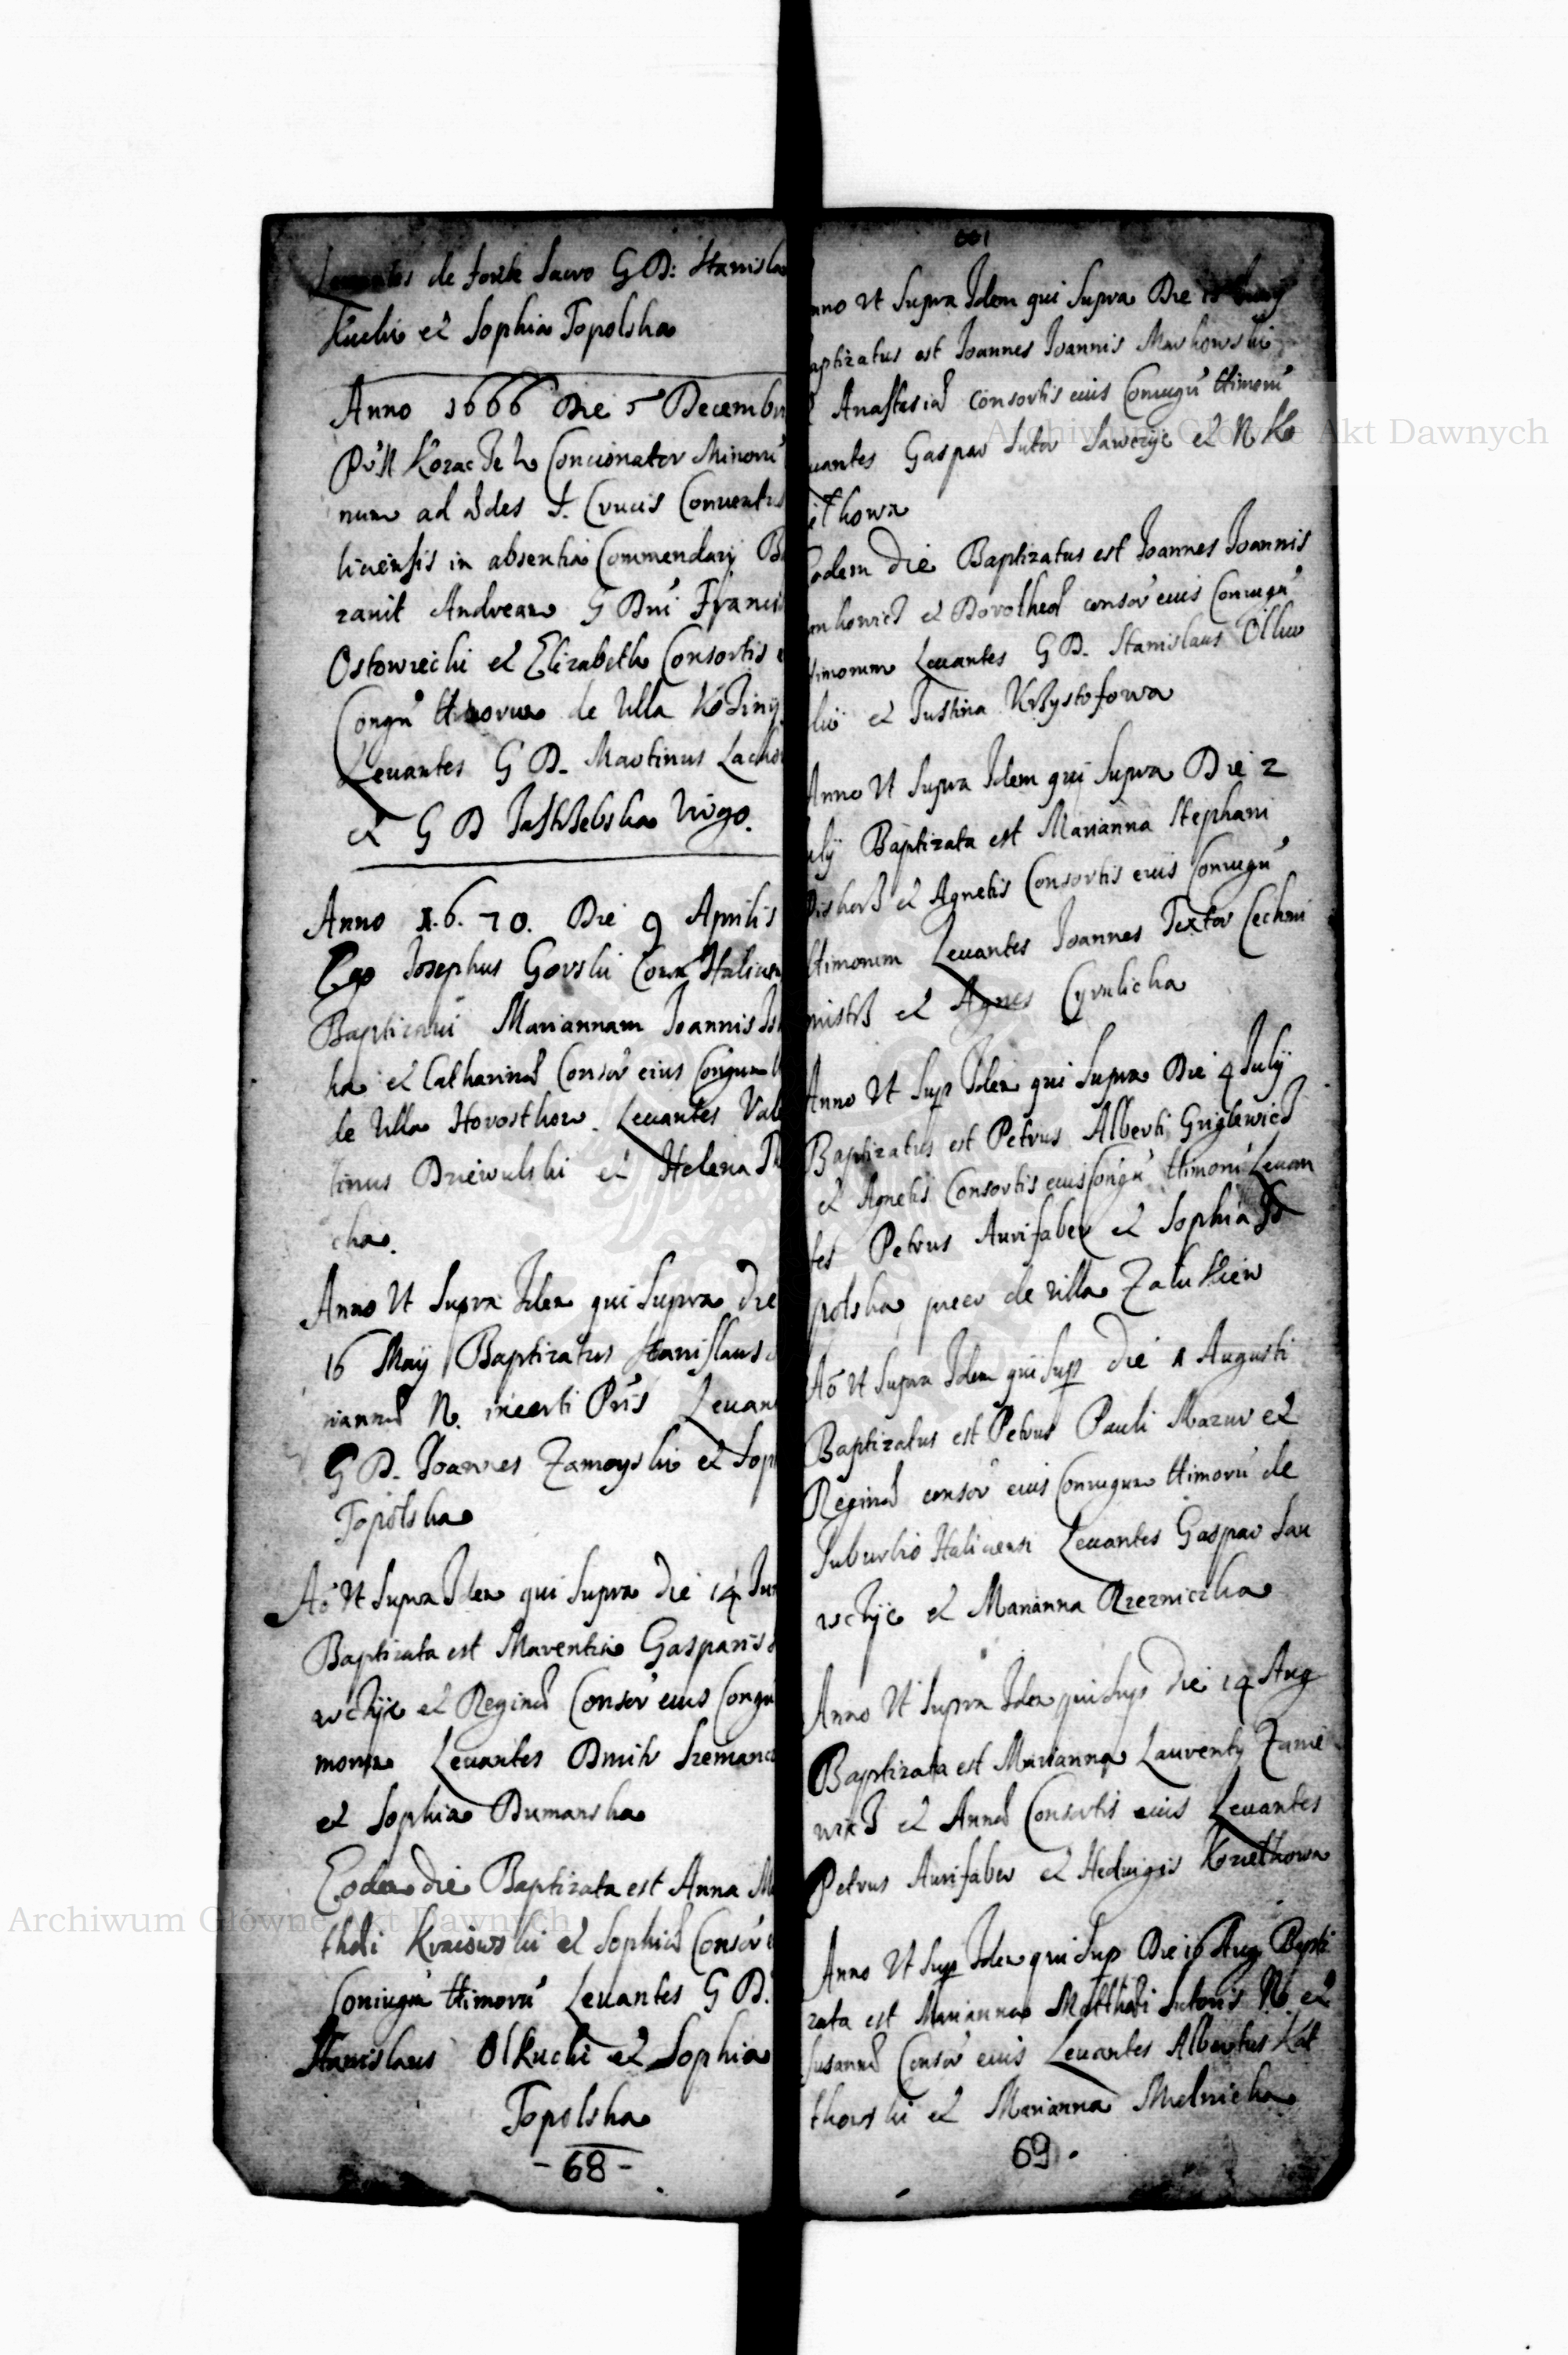 Levantes de fonte Sacro G D: Stanisla
Kuchi et Sophia Topolska
Anno 1666 Die 5 Decembr
Concionator Minoru
num ad ædes S. Crucis Conventus
liciensis in absentia Commendarij B
zavit Andream G Dni Francis
Ostowiecki et Elizabeth Consortis
Congu ttimorum de Villa
Levantes G D. Martinus Lacho
et G D Jastrzebska Virgo.
Anno 1.6.70. Die 9 Aprilis
Ego Josephus Gorski Com Halicien
Baptizavi Mariannam Joannis
ka et Catharinæ Consor eius Congum
de Villa Horostkow. Levantes Vale
tinus Dziewulski et Helena
cha.
Anno Ut Supra Idem qui Supra die
16 Maij Baptizatus Stanislaus
riannæ N. incerti Pris Levan
G D. Joannes Zamoyski et Sop
Topolska
Ao Ut Supra Idem qui Supra die 14 Jun
Baptizata est Marentia Gasparis S
wczyc et Reginæ Consor eius Congu
morum Levantes Dmitr
et Sophia Dumanska
Eodem die Baptizata est Anna Ma
thæi Kraiowski et Sophiæ Consor e
Coniugu ttimoru Levantes G D.
Stanislaus Olkuchi et Sophia
Topolska
- 68 -
nno Ut Supra Idem qui Supra Die
aptizatus est Joannes Joannis Markowski
Anastasiæ Consortis eius Coniugu ttimoru
vantes Gaspar Sutor Sawczyc et N Ko
ithowa
odem Die Baptizatus est Joannes Joannis
et Dorotheæ consor eius Coniugu
timorum Levantes G D. Stanislaus Olku
et Justina Krzystofowa
Anno Ut Supra Idem qui Supra Die 2
uly Baptizata est Marianna Stephani
et Agnetis Consortis eius Coniugu
ttimorum Levantes Joannes Textor Cechmi
mistrz et Agnes Cyrulicka
Anno Ut Sup Idem qui Supra Die 4 July
Baptizatus est Petrus Alberti Griglewicz
et Agnetis Consortis eius Congu ttimoru Levan
tes Petrus Aurifaber et Sophia To
polska puer de villa Zalukiew
Ao Ut Supra Idem qui Sup die 1 Augusti
Baptizatus est Petrus Pauli Mazur et
Reginæ consor eius Coniugum ttimoru de
Suburbio Haliciensi Levantes Gaspar Sau
wczyc et Marianna Rzezniczka
Anno Ut Supra Idem qui Sup die 14 Aug
Baptizata est Marianna Laurenty Zanie
wicz et Annæ Consortis eius Levantes
Petrus Aurifaber et Hedvigis
Anno Ut Sup Idem qui Sup Die 16 Aug Bapti
zata est Marianna Matthæi Sutoris N. et
Susannæ Consor eius Levantes Albertus Kat
thowski et Marianna Melnicka
69.
Archiwum Główne Akt Dawnych
Archiwum Główne Akt Dawnych